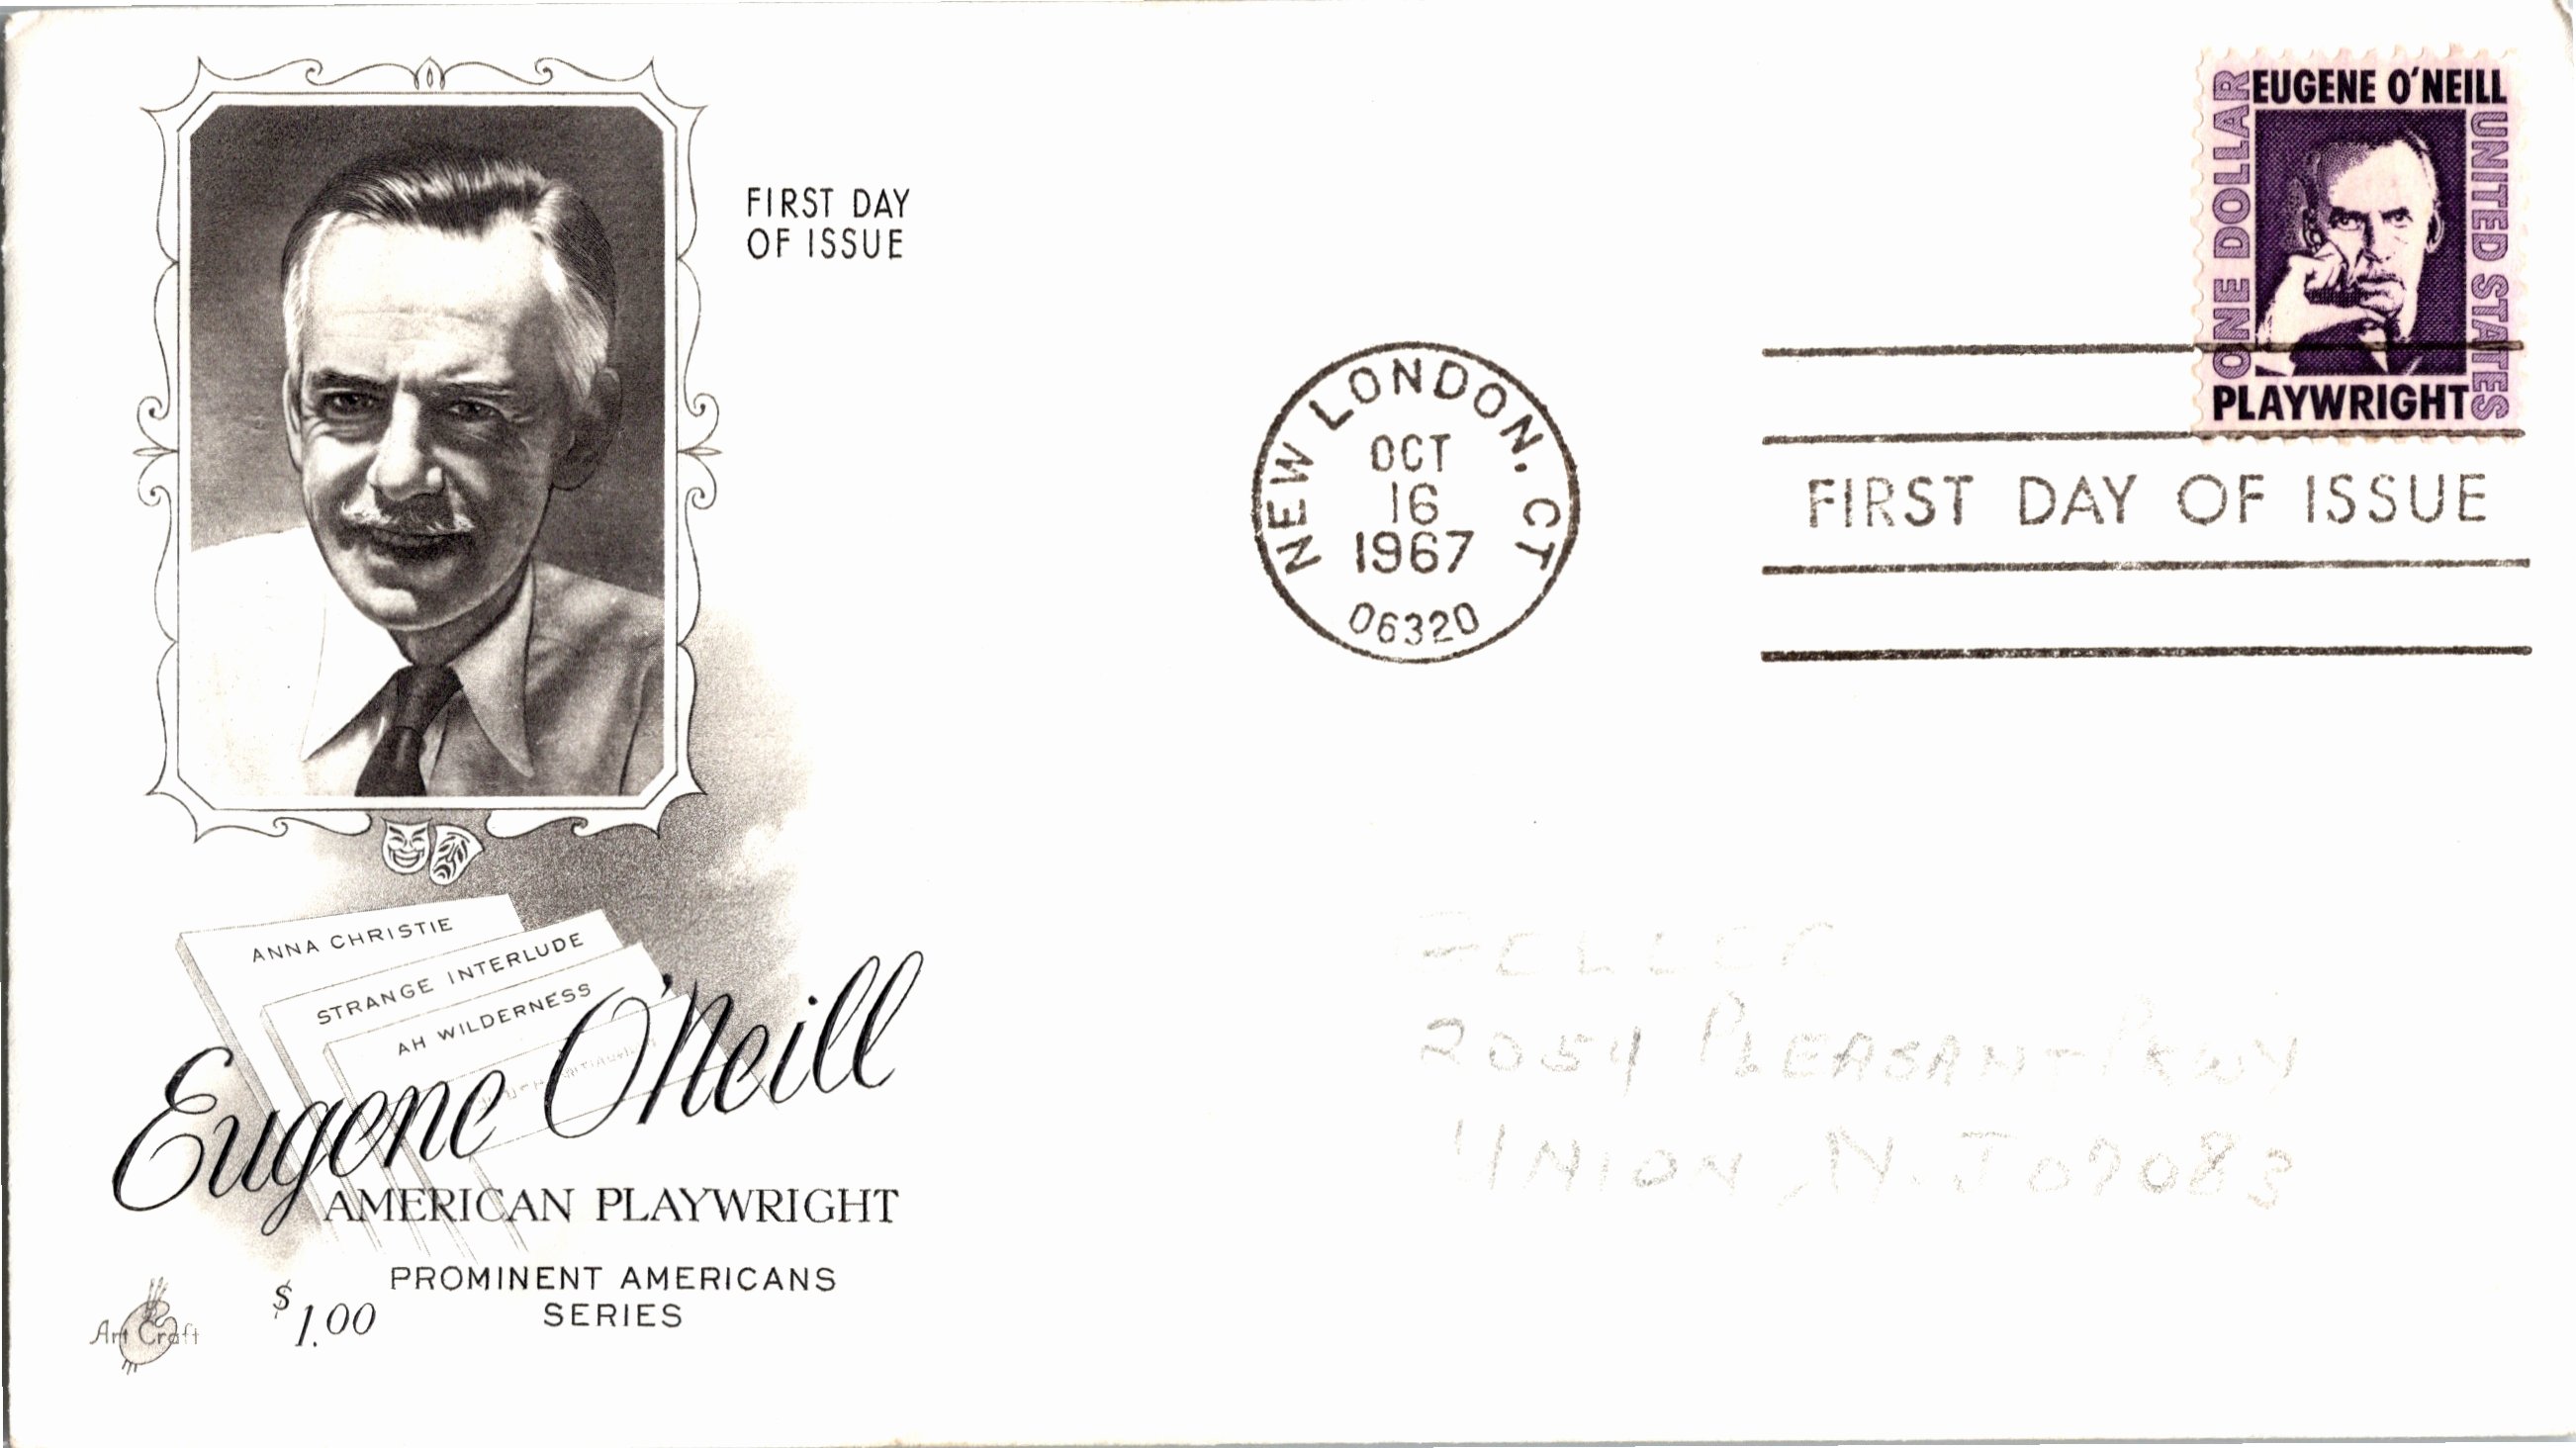 FIRST DAY
OF ISSUE
EUGENE O'NEILL
ONE DOLLAR
UNITED STATES
PLAYWRIGHT
NEW LONDON, CT
OCT
16
1967
06320
FIRST DAY OF ISSUE
ANNA CHRISTIE
STRANGE INTERLUDE
AH WILDERNESS
Eugene O'Neill
AMERICAN PLAYWRIGHT
PROMINENT AMERICANS
SERIES
$1.00
Art Craft
2054 PLEASANT PKWY
UNION, N.J 07083